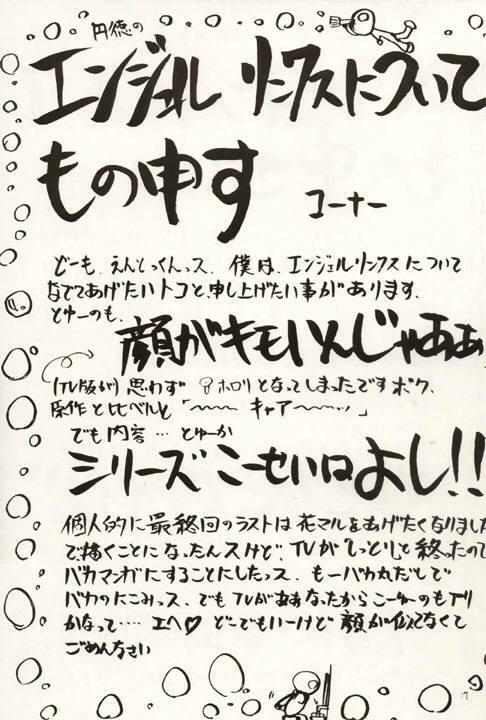 円徳の
エンジェルリンクスについて
もの申す コーナー
どーも、えんとっくんっス、僕は、エンジェルリンクスについて
なでてあげたいトコと、申し上げたい事があります、
とゆーのも、
顔がキモいんじゃあぁ
(TV版が) 思わず ホロリとなってしまったですボク、
原作と比べルと「〜〜〜キャアー〜〜ッ」
でも内容…とゆーか
シリーズこーせいはよし!!
個人的に最終回のラストは花マルをあげたくなりました
で描くことになったんスけど、TVが「しっとり」と終ったので
バカマンガにすることにしたっス、もーバカ丸だしで
バカのにこみっス、でもTVがああなったからこーゆーのもアリ
かなって‥‥エヘ♡ どーでもいーけど顔が似てなくて
ごめんなさい